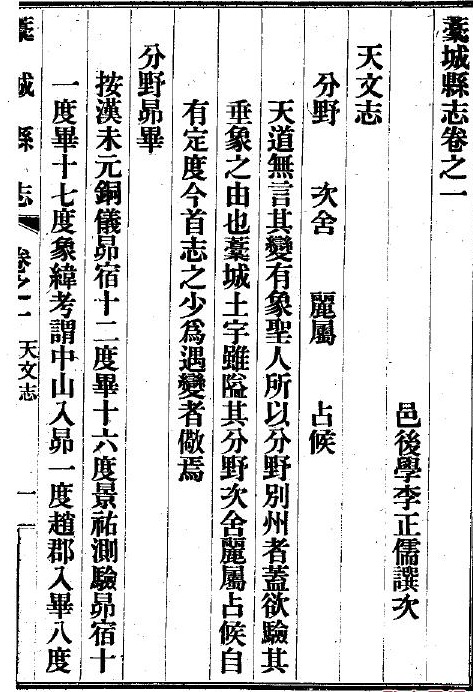 藁城縣志卷之一
邑後學李正儒譔次
天文志
分野　次舍　麗屬　占候
天道無言其變有象聖人所以分野別州者蓋欲驗其
垂象之由也藁城土宇雖隘其分野次舍麗屬占候自
有定度今首志之少爲遇變者儆焉
分野昴畢
按漢末元銅儀昴宿十二度畢十六度景祐測驗昴宿十
一度畢十七度象緯考謂中山入昴一度趙郡入畢八度
藁城縣志　卷之一　天文志　一